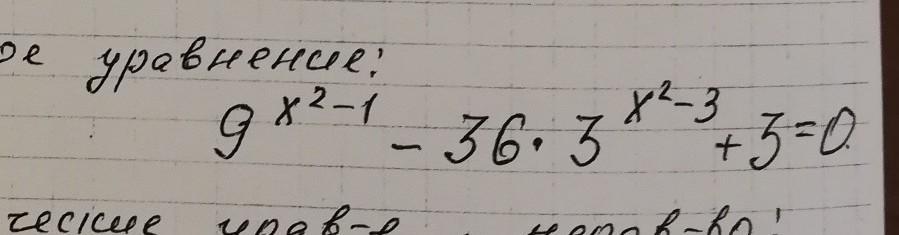 ое уравнение:
9^{x^2-1} - 36 · 3^{x^2-3} + 3 = 0.
ческие урав-е